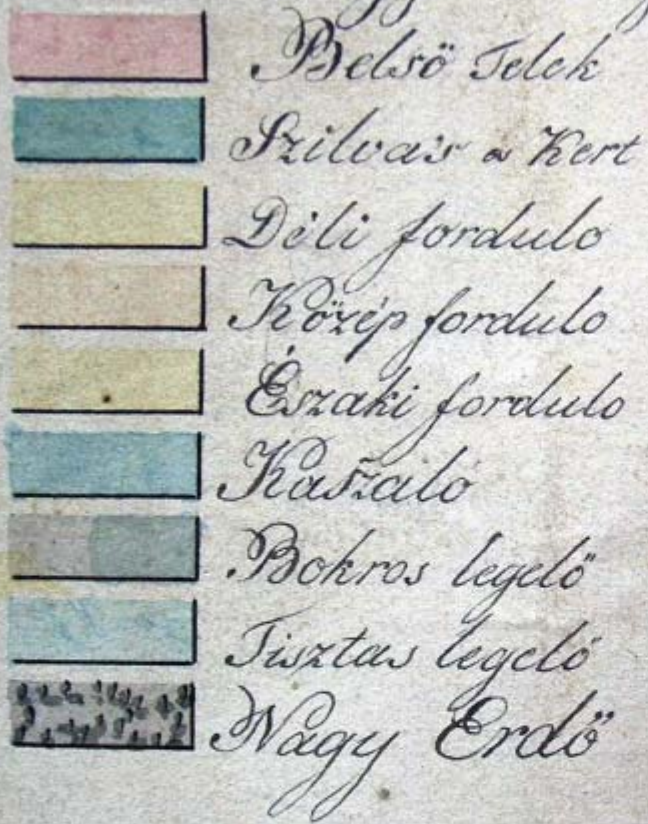 Belső Telek
Szilvás a Kert
Déli forduló
Közép forduló
Északi forduló
Kaszáló
Bokros legelő
Tisztás legelő
Nagy Erdő